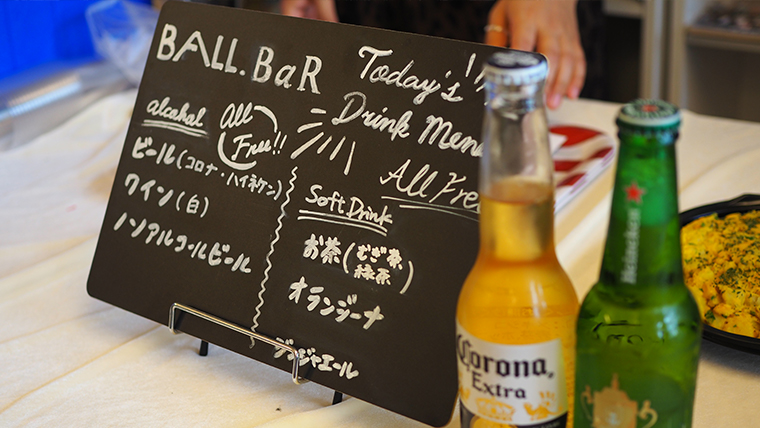 BALL.BaR
Today's
Drink Menu
alcahal
All
Free!!
ビール(コロナ・ハイネケン)
ワイン(白)
ノンアルコールビール
All Free
Soft Drink
お茶(むぎ茶
緑茶)
オランジーナ
ジンジャエール
Corona
Extra
Heineken